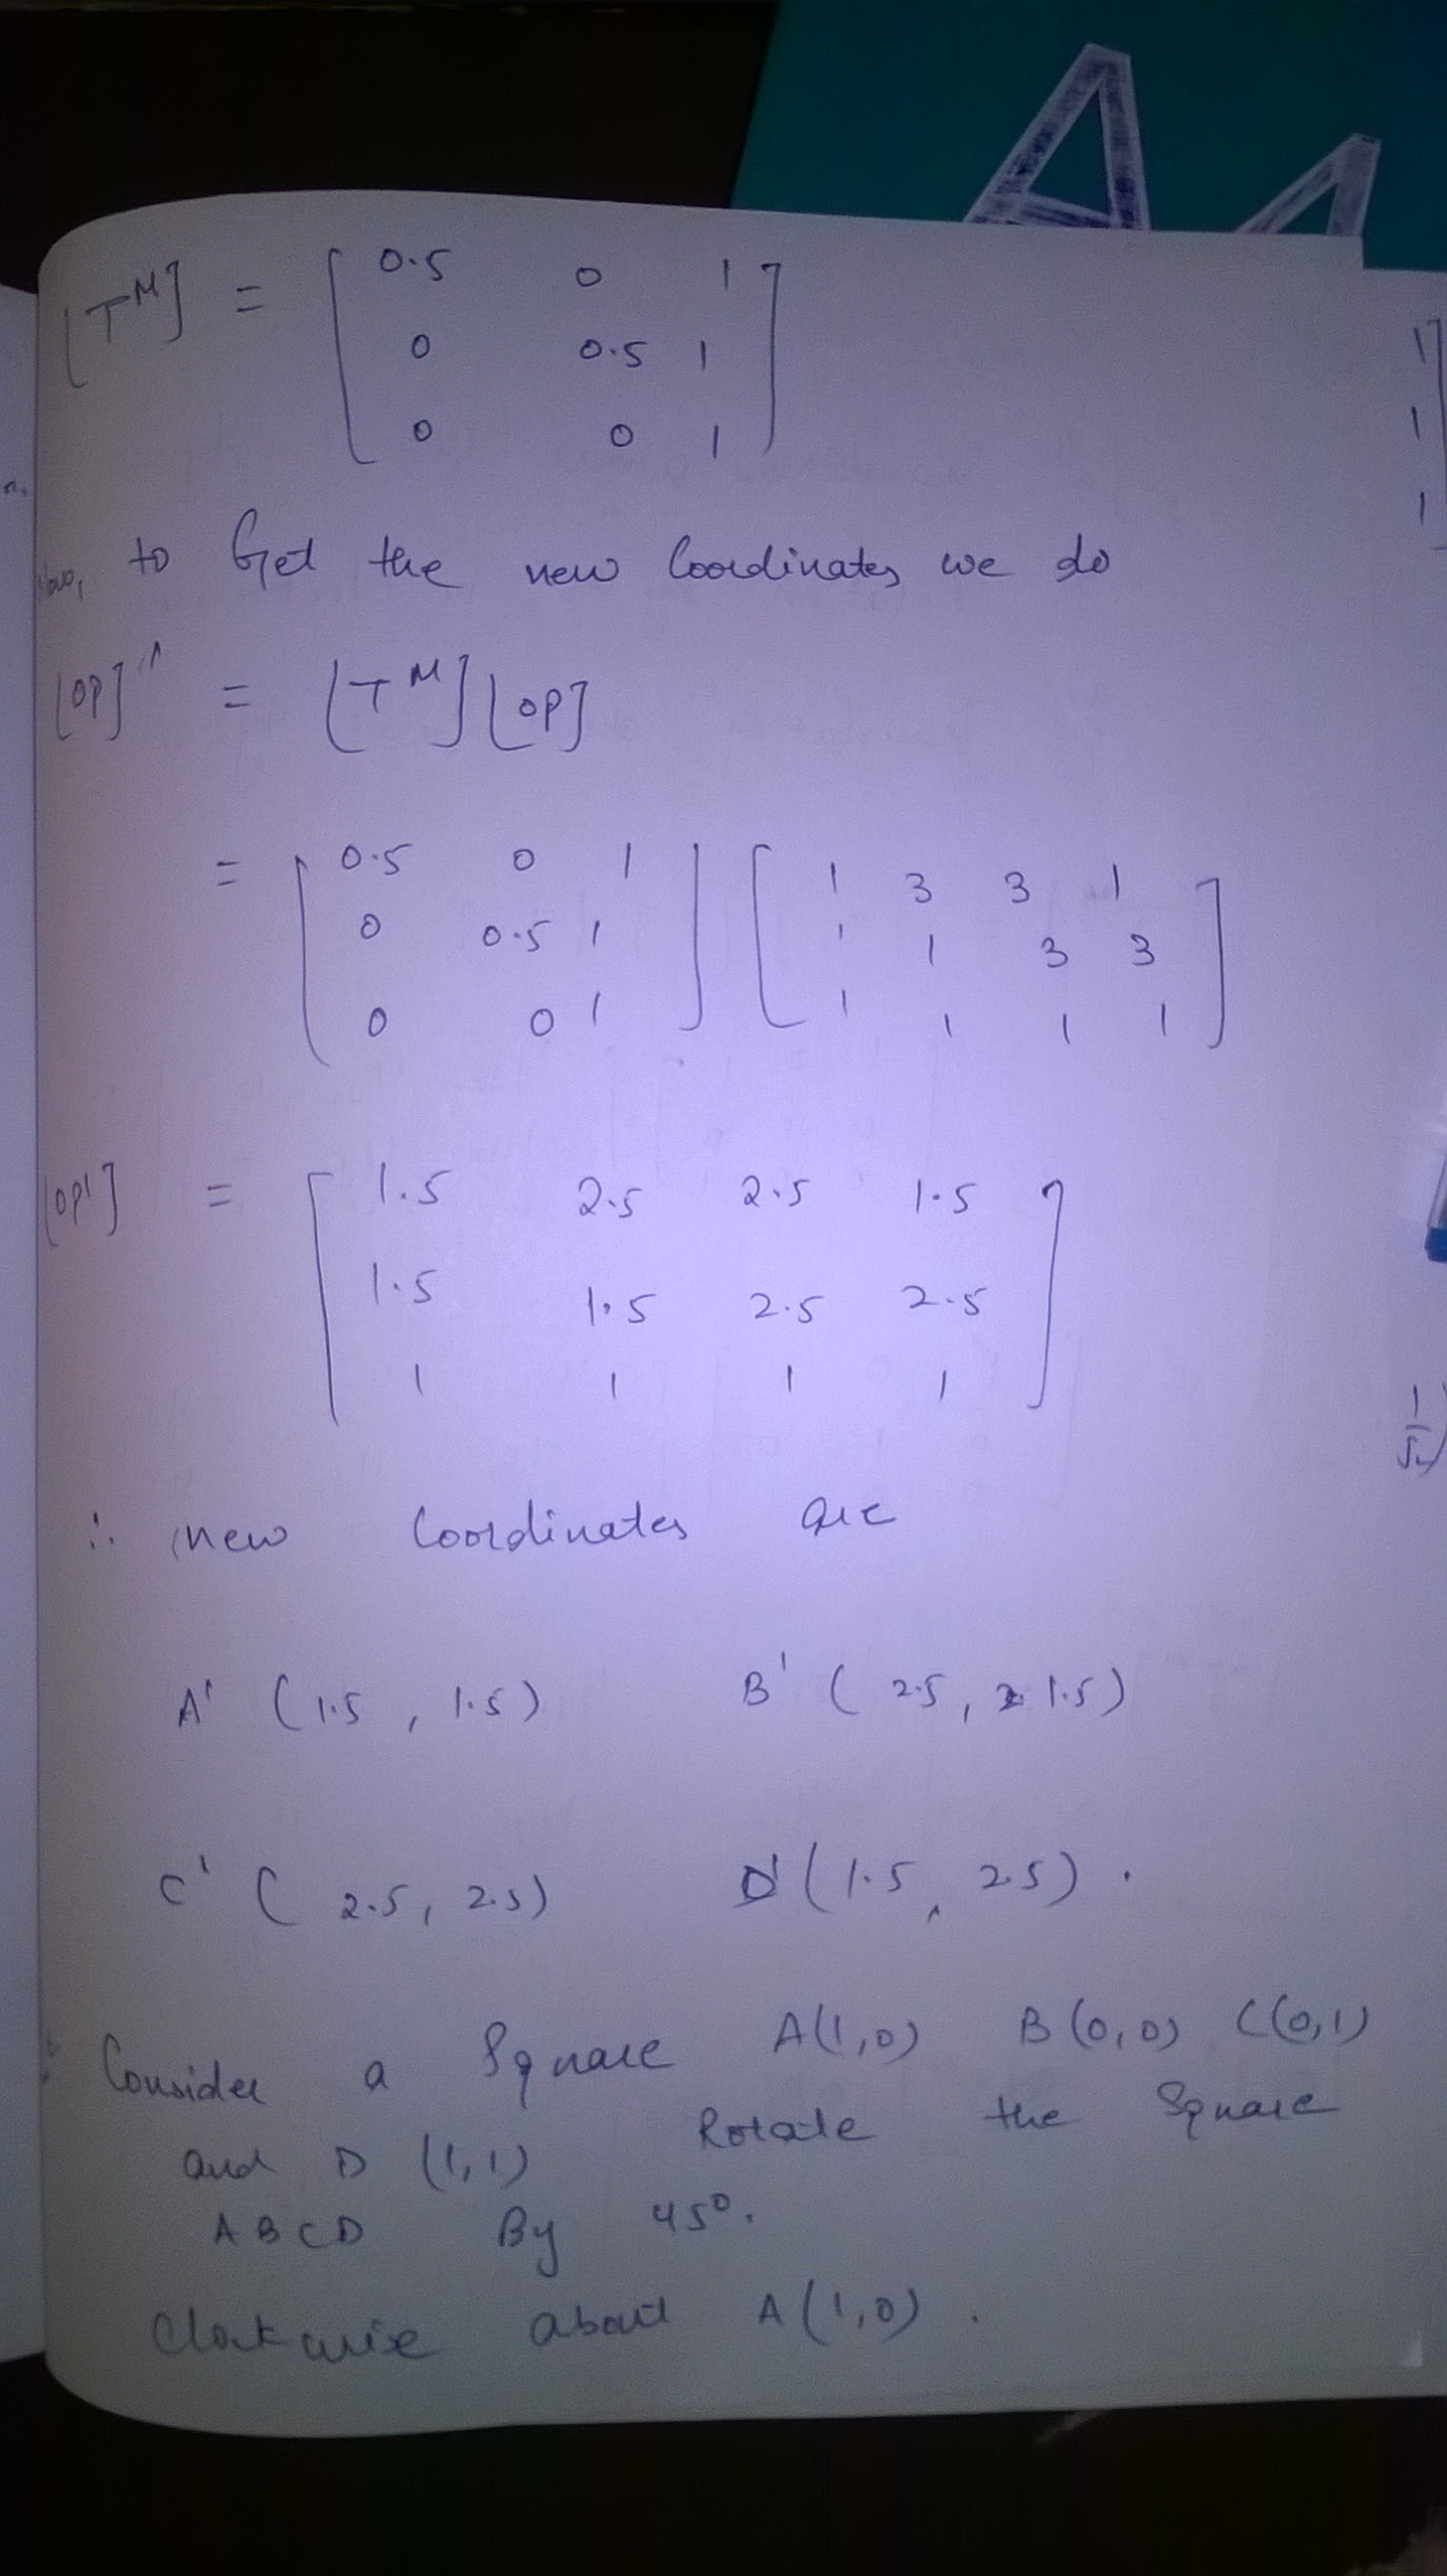 [T^M] = [ 0.5 0 1
0 0.5 1
0 0 1 ]
to Get the new Coordinates we do
[OP]' = [T^M] [OP]
= [ 0.5 0 1 ] [ 1 3 3 1
0 0.5 1 1 1 3 3
0 0 1 ] 1 1 1 1 ]
[OP'] = [ 1.5 2.5 2.5 1.5
1.5 1.5 2.5 2.5
1 1 1 1 ]
∴ new Coordinates are
A' (1.5, 1.5) B' (2.5, 1.5)
C' (2.5, 2.5) D' (1.5, 2.5).
Consider a Square A(1,0) B(0,0) C(0,1)
and D (1,1) Rotate the Square
ABCD By 45°.
Clockwise about A(1,0).
A4
1
1
1